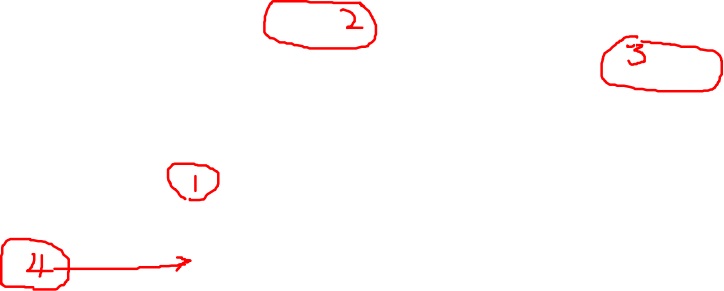 2
3
1
4